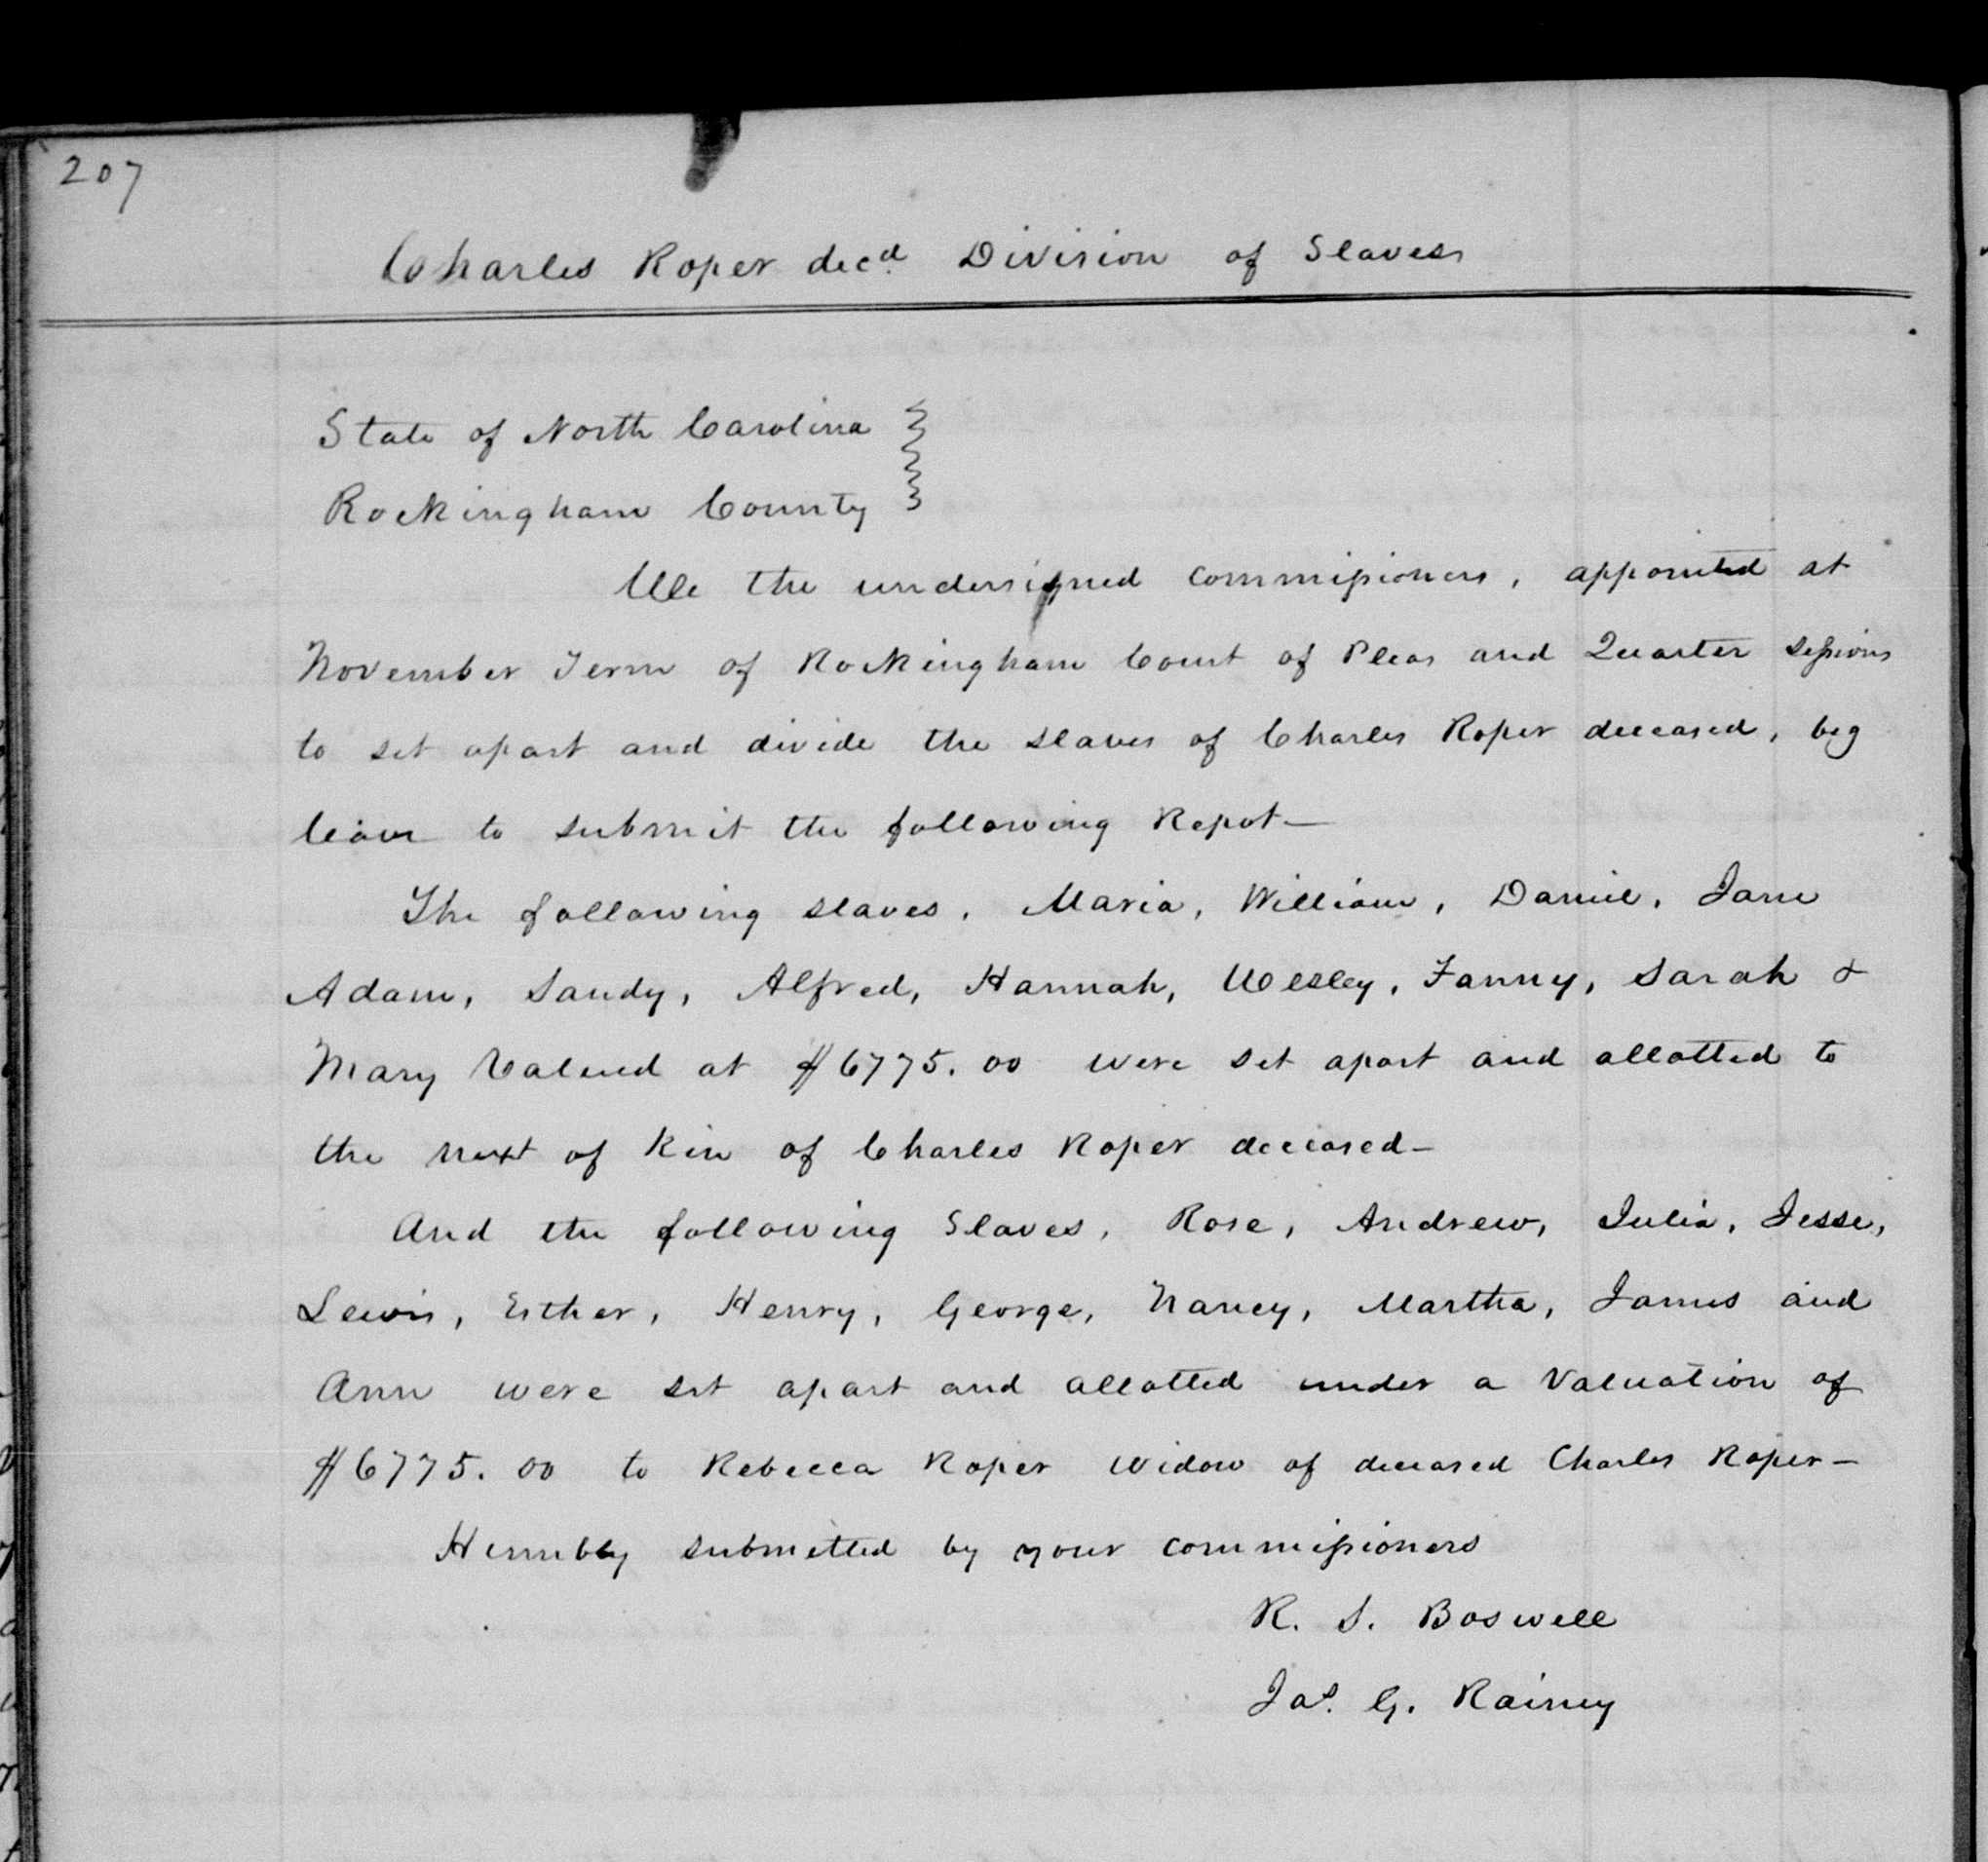 207
Charles Roper decd Division of Slaves
State of North Carolina
Rockingham County
We the undersigned commissioners, appointed at
November Term of Rockingham Court of Pleas and Quarter Sessions
to set apart and divide the slaves of Charles Roper deceased, beg
leave to submit the following Repot—
The following slaves, Maria, William, Daniel, Jane
Adam, Sandy, Alfred, Hannah, Wesley, Fanny, Sarah &
Mary Valued at $6775.00 were set apart and allotted to
the next of Kin of Charles Roper deceased—
And the following Slaves, Rose, Andrew, Julia, Jesse,
Lewis, Esther, Henry, George, Nancy, Martha, James and
Ann were set apart and allotted under a Valuation of
$6775.00 to Rebecca Roper Widow of deceased Charles Roper—
Humbly submitted by your commissioners
R. S. Boswell
Jas. G. Rainey